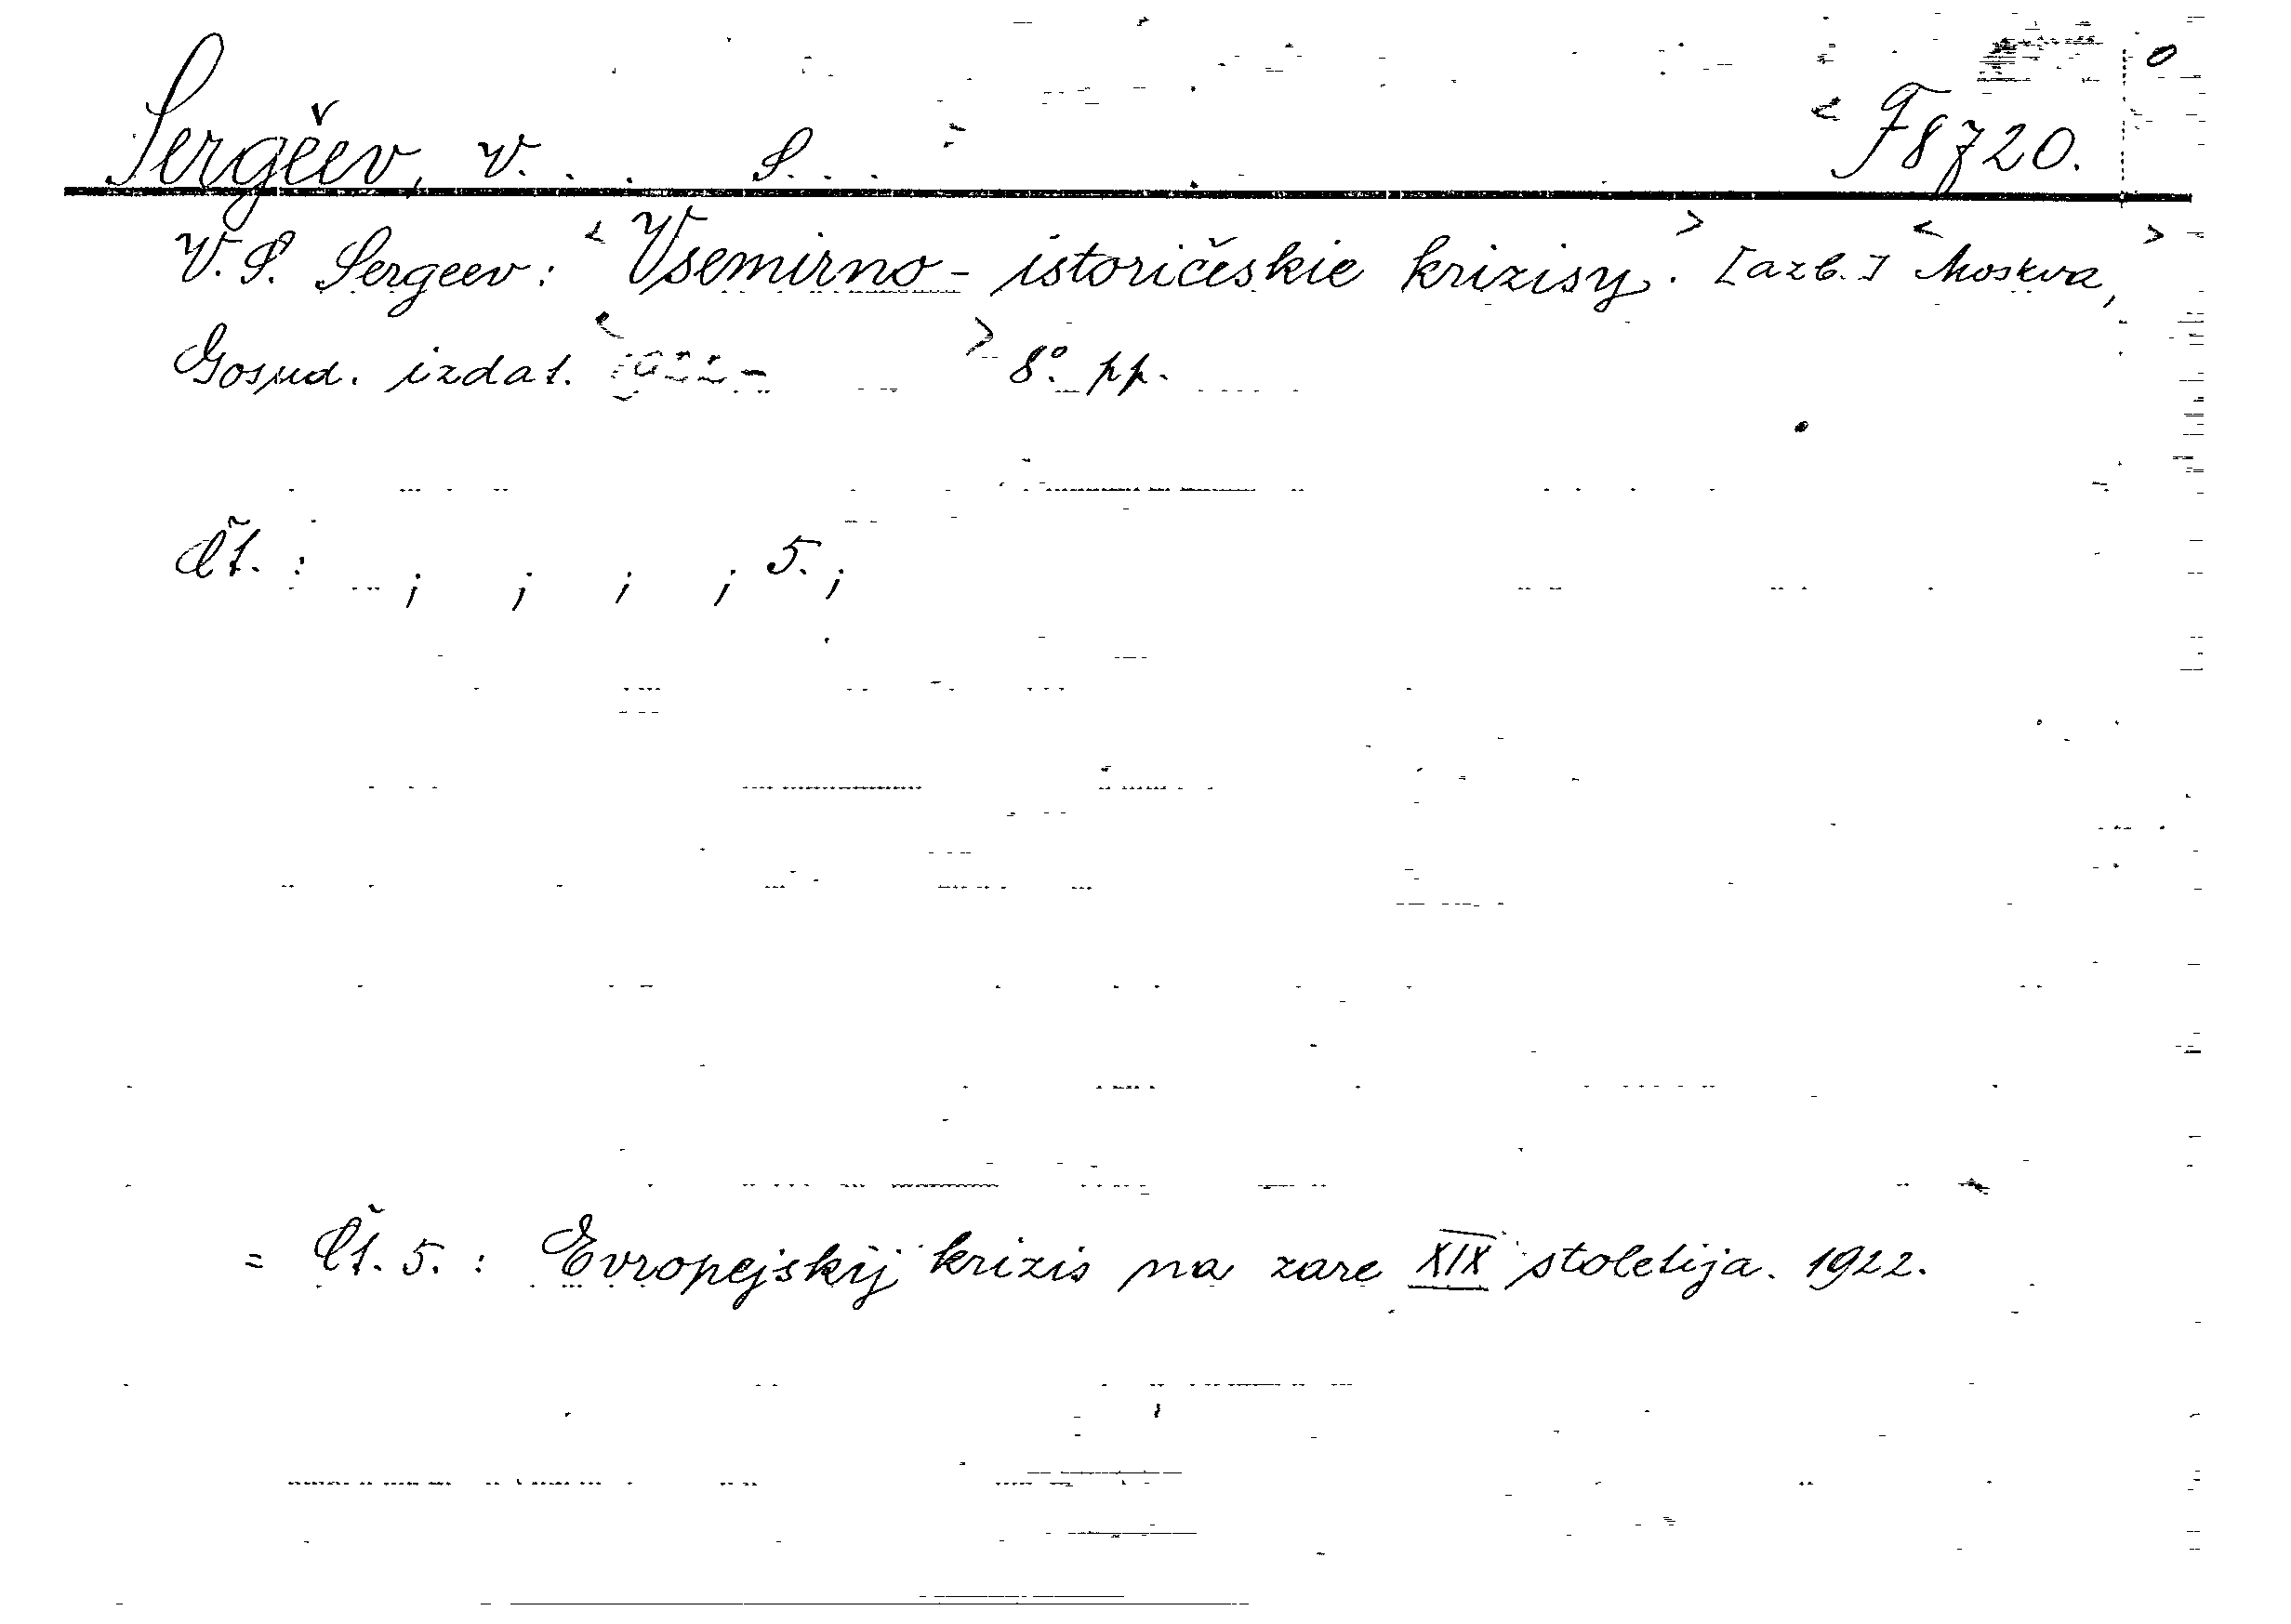 Sergěev, V. . . S. . . F8720.
V. S. Sergeev: Vsemirno-istoričeskie krizisy. [azb.] Moskva,
Gosud. izdat. 1922- 8°. pp.
Čt. : ; ; ; ; 5. ;
= Čt. 5. : Evropejskij krizis na zare XIX stoletija. 1922.